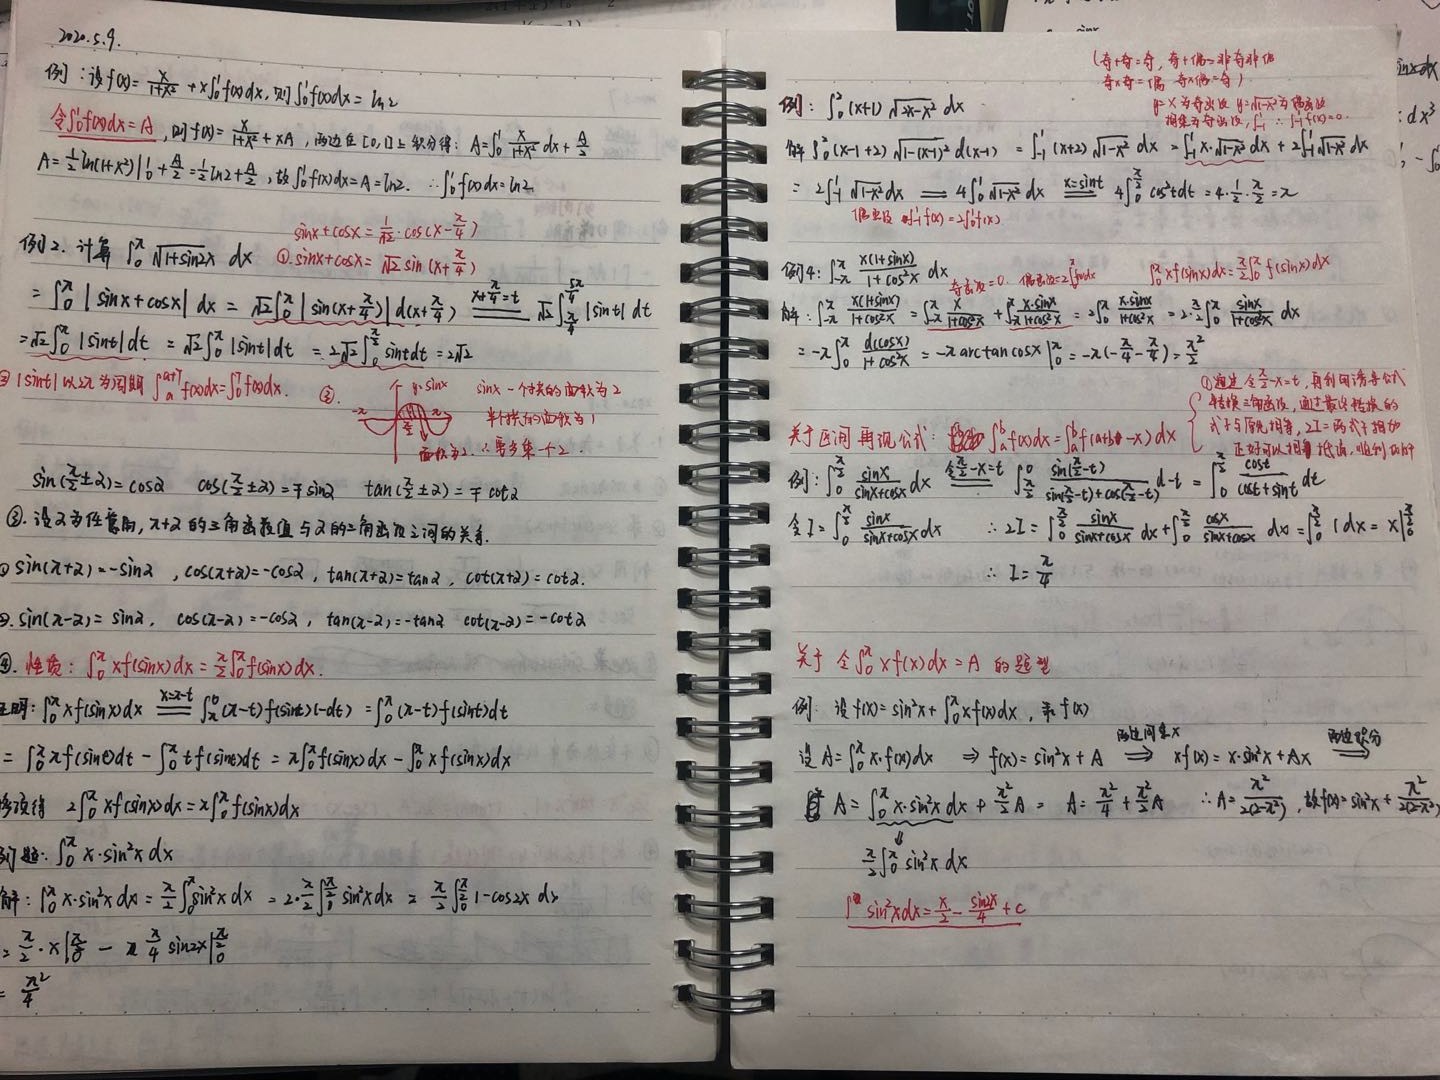 2020.5.9.
例：设f(x)= x/(1+x²) + x∫₀¹f(x)dx, 则∫₀¹f(x)dx = ln2
令∫₀¹f(x)dx = A, 则f(x)= x/(1+x²) + xA , 两边在[0,1]上积分得：A=∫₀¹ x/(1+x²) dx + A/2
A= ½ln(1+x²)|₀¹ + A/2 = ½ln2 + A/2 , 故∫₀¹f(x)dx = A = ln2. ∴∫₀¹f(x)dx = ln2
sinx+cosx = 1/√2 · cos(x-π/4)
例2. 计算 ∫₀^π √(1+sin2x) dx ①.sinx+cosx = √2 sin(x+π/4)
= ∫₀^π |sinx+cosx| dx = √2∫₀^π |sin(x+π/4)| d(x+π/4) =(x+π/4=t)= √2∫_{π/4}^{5π/4} |sint| dt
=√2∫₀^π |sint| dt = √2∫₀^π |sint| dt = 2√2∫₀^{π/2} sintdt = 2√2
② |sint| 以2π为周期 ∫ₐ^{a+T} f(x)dx=∫₀^T f(x)dx. ③. y=sinx sinx一个拱的面积为2
-π π π/2 半个拱的面积为1
面积为2. ∴需多乘一个2.
sin(π/2±α)=cosα cos(π/2±α)=∓sinα tan(π/2±α)=∓cotα
③. 设α为任意角, π+α的三角函数值与α的三角函数之间的关系.
① sin(π+α)=-sinα , cos(π+α)=-cosα , tan(π+α)=tanα , cot(π+α)=cotα.
②. sin(π-α)= sinα, cos(π-α)=-cosα , tan(π-α)=-tanα cot(π-α)=-cotα
④. 性质：∫₀^π xf(sinx)dx = π/2∫₀^π f(sinx)dx.
证明：∫₀^π xf(sinx)dx =(x=π-t)= ∫_π^0 (π-t)f(sint)(-dt) =∫₀^π (π-t)f(sint)dt
= ∫₀^π πf(sint)dt - ∫₀^π t f(sint)dt = π∫₀^π f(sinx)dx - ∫₀^π x f(sinx)dx
移项得 2∫₀^π xf(sinx)dx=π∫₀^π f(sinx)dx
例题：∫₀^π x·sin²x dx
解：∫₀^π x·sin²x dx = π/2∫₀^π sin²x dx = 2·π/2∫₀^{π/2} sin²x dx = π/2∫₀^{π/2} 1-cos2x dx
= π/2 · x|₀^{π/2} - π/4 sin2x|₀^{π/2}
= π²/4
(奇+奇=奇, 奇+偶=非奇非偶
奇×奇=偶 奇×偶=奇)
例：∫₀² (x+1) √(2x-x²) dx
y=x为奇函数 y=√(1-x²)为偶函数
相乘为奇函数, ∫₋₁¹ ∴∫₋₁¹f(x)=0.
解 ∫₀² (x-1+2) √(1-(x-1)²) d(x-1) = ∫₋₁¹ (x+2)√(1-x²) dx = ∫₋₁¹ x·√(1-x²) dx + 2∫₋₁¹ √(1-x²) dx
= 2∫₋₁¹ √(1-x²) dx = 4∫₀¹ √(1-x²) dx =(x=sint)= 4∫₀^{π/2} cos²tdt = 4·½·π/2 = π
偶函数 ∫₋₁¹ f(x) = 2∫₀¹ f(x)
例4：∫_{-π}^π x(1+sinx)/(1+cos²x) dx 奇函数=0. 偶函数=2∫₀^π f(x)dx ∫₀^π xf(sinx)dx=π/2∫₀^π f(sinx)dx
解：∫_{-π}^π x(1+sinx)/(1+cos²x) = ∫_{-π}^π x/(1+cos²x) + ∫_{-π}^π x·sinx/(1+cos²x) = 2∫₀^π x·sinx/(1+cos²x) = 2·π/2∫₀^π sinx/(1+cos²x) dx
= -π∫₀^π d(cosx)/(1+cos²x) = -π arctan cosx |₀^π = -π(-π/4-π/4) = π²/2
①通过令π/2-x=t, 再利用诱导公式
转换三角函数, 通过最终转换的
关于区间再现公式：∫ₐᵇ f(x)dx=∫ₐᵇ f(a+b-x)dx 式子与原式相等, 2I=两式子相加
正好可以相抵消,
例：∫₀^{π/2} sinx/(sinx+cosx) dx =(令π/2-x=t)= ∫_{π/2}^0 sin(π/2-t)/(sin(π/2-t)+cos(π/2-t)) d-t = ∫₀^{π/2} cost/(cost+sint) dt
令I=∫₀^{π/2} sinx/(sinx+cosx) dx ∴2I=∫₀^{π/2} sinx/(sinx+cosx) dx + ∫₀^{π/2} cosx/(sinx+cosx) dx = ∫₀^{π/2} 1dx = x|₀^{π/2}
∴ I= π/4
关于令∫₀^π xf(x)dx = A 的题型
例：设f(x)=sin²x+∫₀^π xf(x)dx , 求f(x)
设A=∫₀^π x·f(x)dx ⇒ f(x)=sin²x+A 两边同乘x ⇒ xf(x)=x·sin²x+Ax 两边积分 ⇒
A=∫₀^π x·sin²x dx + π²/2 A = A= π²/4 + π²/2 A ∴A= π²/(2(2-π²)) , 故f(x)=sin²x+ π²/(2(2-π²))
π/2∫₀^π sin²x dx
∫ sin²xdx = x/2 - sin2x/4 + c